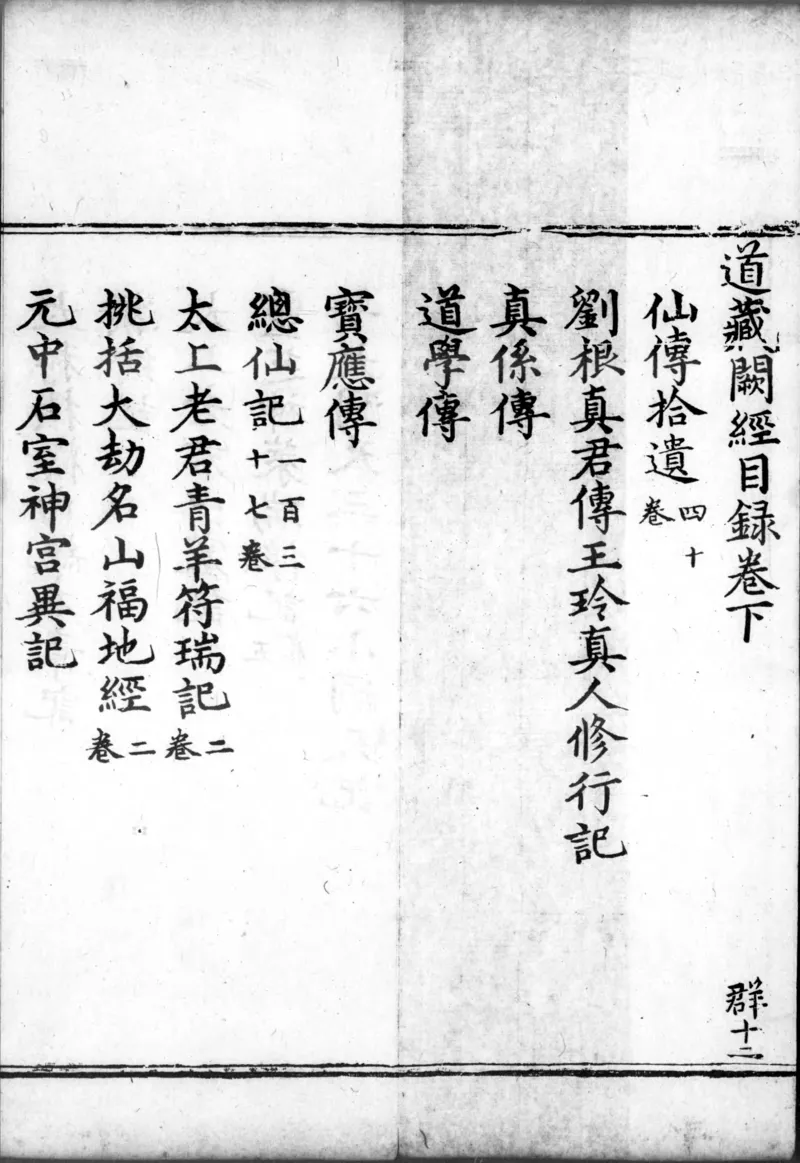 道藏闕經目録卷下
群十二
仙傳拾遺四十卷
劉根真君傳王玲真人修行記
真係傳
道學傳
寶應傳
總仙記一百三十七卷
太上老君青羊符瑞記二卷
挑括大劫名山福地經二卷
元中石室神宫異記